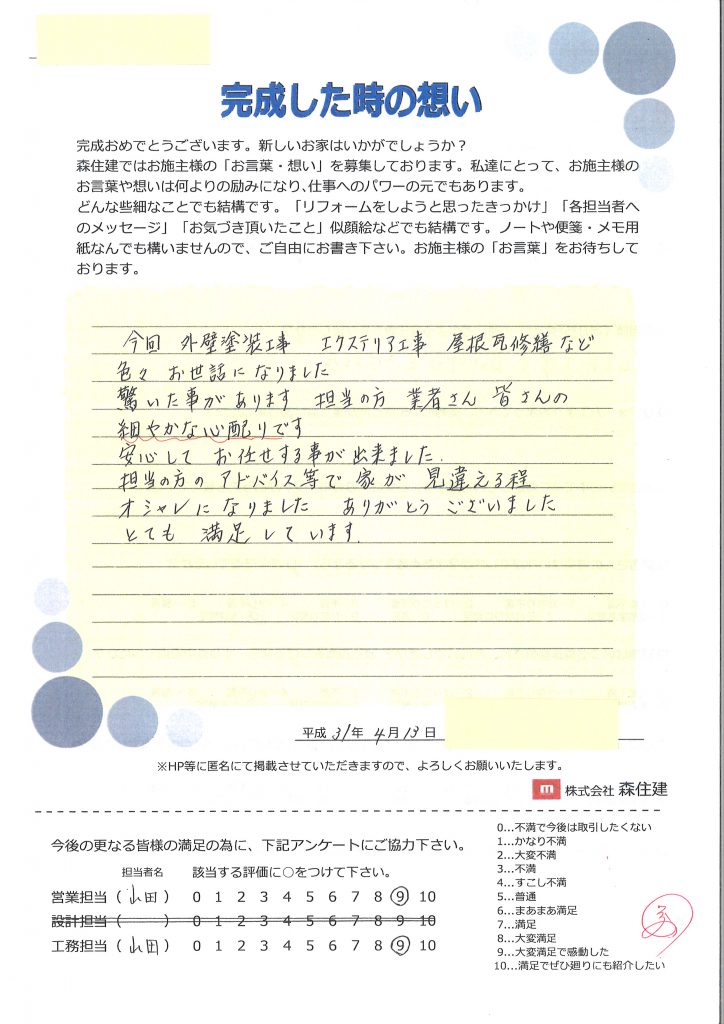 完成した時の想い
完成おめでとうございます。新しいお家はいかがでしょうか？
森住建ではお施主様の「お言葉・想い」を募集しております。私達にとって、お施主様の
お言葉や想いは何よりの励みになり、仕事へのパワーの元でもあります。
どんな些細なことでも結構です。「リフォームをしようと思ったきっかけ」「各担当者へ
のメッセージ」「お気づき頂いたこと」似顔絵などでも結構です。ノートや便箋・メモ用
紙なんでも構いませんので、ご自由にお書き下さい。お施主様の「お言葉」をお待ちして
おります。
今回 外壁塗装工事 エクステリア工事 屋根瓦修繕など
色々 お世話になりました
驚いた事があります 担当の方 業者さん 皆さんの
細やかな心配りです
安心して お任せする事が出来ました.
担当の方の アドバイス等で 家が 見違える程
オシャレになりました ありがとう ございました
とても 満足しています.
平成 31年 4月13日
※HP等に匿名にて掲載させていただきますので、よろしくお願いいたします。
m 株式会社 森住建
今後の更なる皆様の満足の為に、下記アンケートにご協力下さい。
担当者名 該当する評価に○をつけて下さい。
営業担当（山田）0 1 2 3 4 5 6 7 8 9 10
設計担当（ ）0 1 2 3 4 5 6 7 8 9 10
工務担当（山田）0 1 2 3 4 5 6 7 8 9 10
0…不満で今後は取引したくない
1…かなり不満
2…大変不満
3…不満
4…すこし不満
5…普通
6…まあまあ満足
7…満足
8…大変満足
9…大変満足で感動した
10…満足でぜひ廻りにも紹介したい